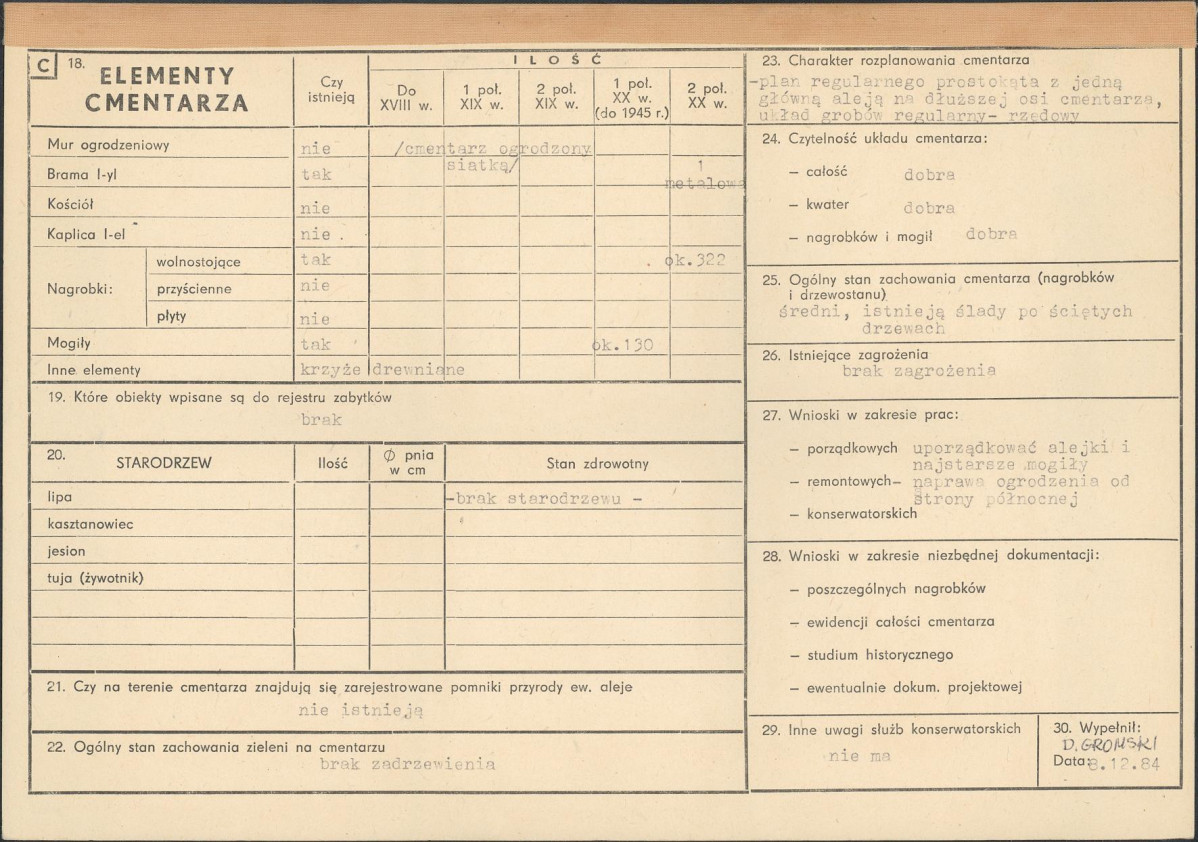 C 18. ELEMENTY CMENTARZA
Czy istnieją
ILOŚĆ
Do XVIII w.
1 poł. XIX w.
2 poł. XIX w.
1 poł. XX w. (do 1945 r.)
2 poł. XX w.
Mur ogrodzeniowy nie /cmentarz ogrodzony
siatką/
Brama l-yl tak 1
metalowa
Kościół nie
Kaplica l-el nie .
Nagrobki:
wolnostojące tak ok.322
przyścienne nie
płyty nie
Mogiły tak ok.130
Inne elementy krzyże drewniane
19. Które obiekty wpisane są do rejestru zabytków
brak
20. STARODRZEW Ilość Ø pnia w cm Stan zdrowotny
lipa -brak starodrzewu -
kasztanowiec
jesion
tuja (żywotnik)
21. Czy na terenie cmentarza znajdują się zarejestrowane pomniki przyrody ew. aleje
nie istnieją
22. Ogólny stan zachowania zieleni na cmentarzu
brak zadrzewienia
23. Charakter rozplanowania cmentarza
-plan regularnego prostokąta z jedną
główną aleją na dłuższej osi cmentarza,
układ grobów regularny- rzędowy
24. Czytelność układu cmentarza:
– całość dobra
– kwater dobra
– nagrobków i mogił dobra
25. Ogólny stan zachowania cmentarza (nagrobków
i drzewostanu)
średni, istnieją ślady po ściętych
drzewach
26. Istniejące zagrożenia
brak zagrożenia
27. Wnioski w zakresie prac:
– porządkowych uporządkować alejki i
najstarsze mogiły
– remontowych– naprawa ogrodzenia od
strony północnej
– konserwatorskich
28. Wnioski w zakresie niezbędnej dokumentacji:
– poszczególnych nagrobków
– ewidencji całości cmentarza
– studium historycznego
– ewentualnie dokum. projektowej
29. Inne uwagi służb konserwatorskich
nie ma
30. Wypełnił:
D. GROMSKI
Data: 8.12.84